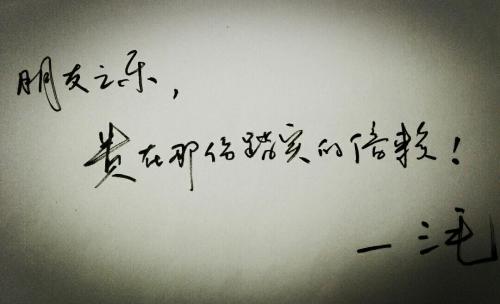 朋友之乐,
贵在那份踏实的信赖!
一三毛